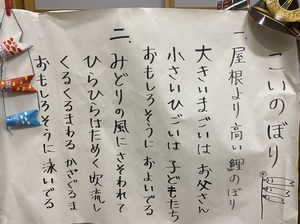 こいのぼり
一、屋根より高い鯉のぼり
大きいまごいは お父さん
小さいひごいは 子どもたち
おもしろそうに およいでる
二、みどりの風に さそわれて
ひらひらはためく 吹流し
くるくるまわる かざぐるま
おもしろそうに 泳いでる